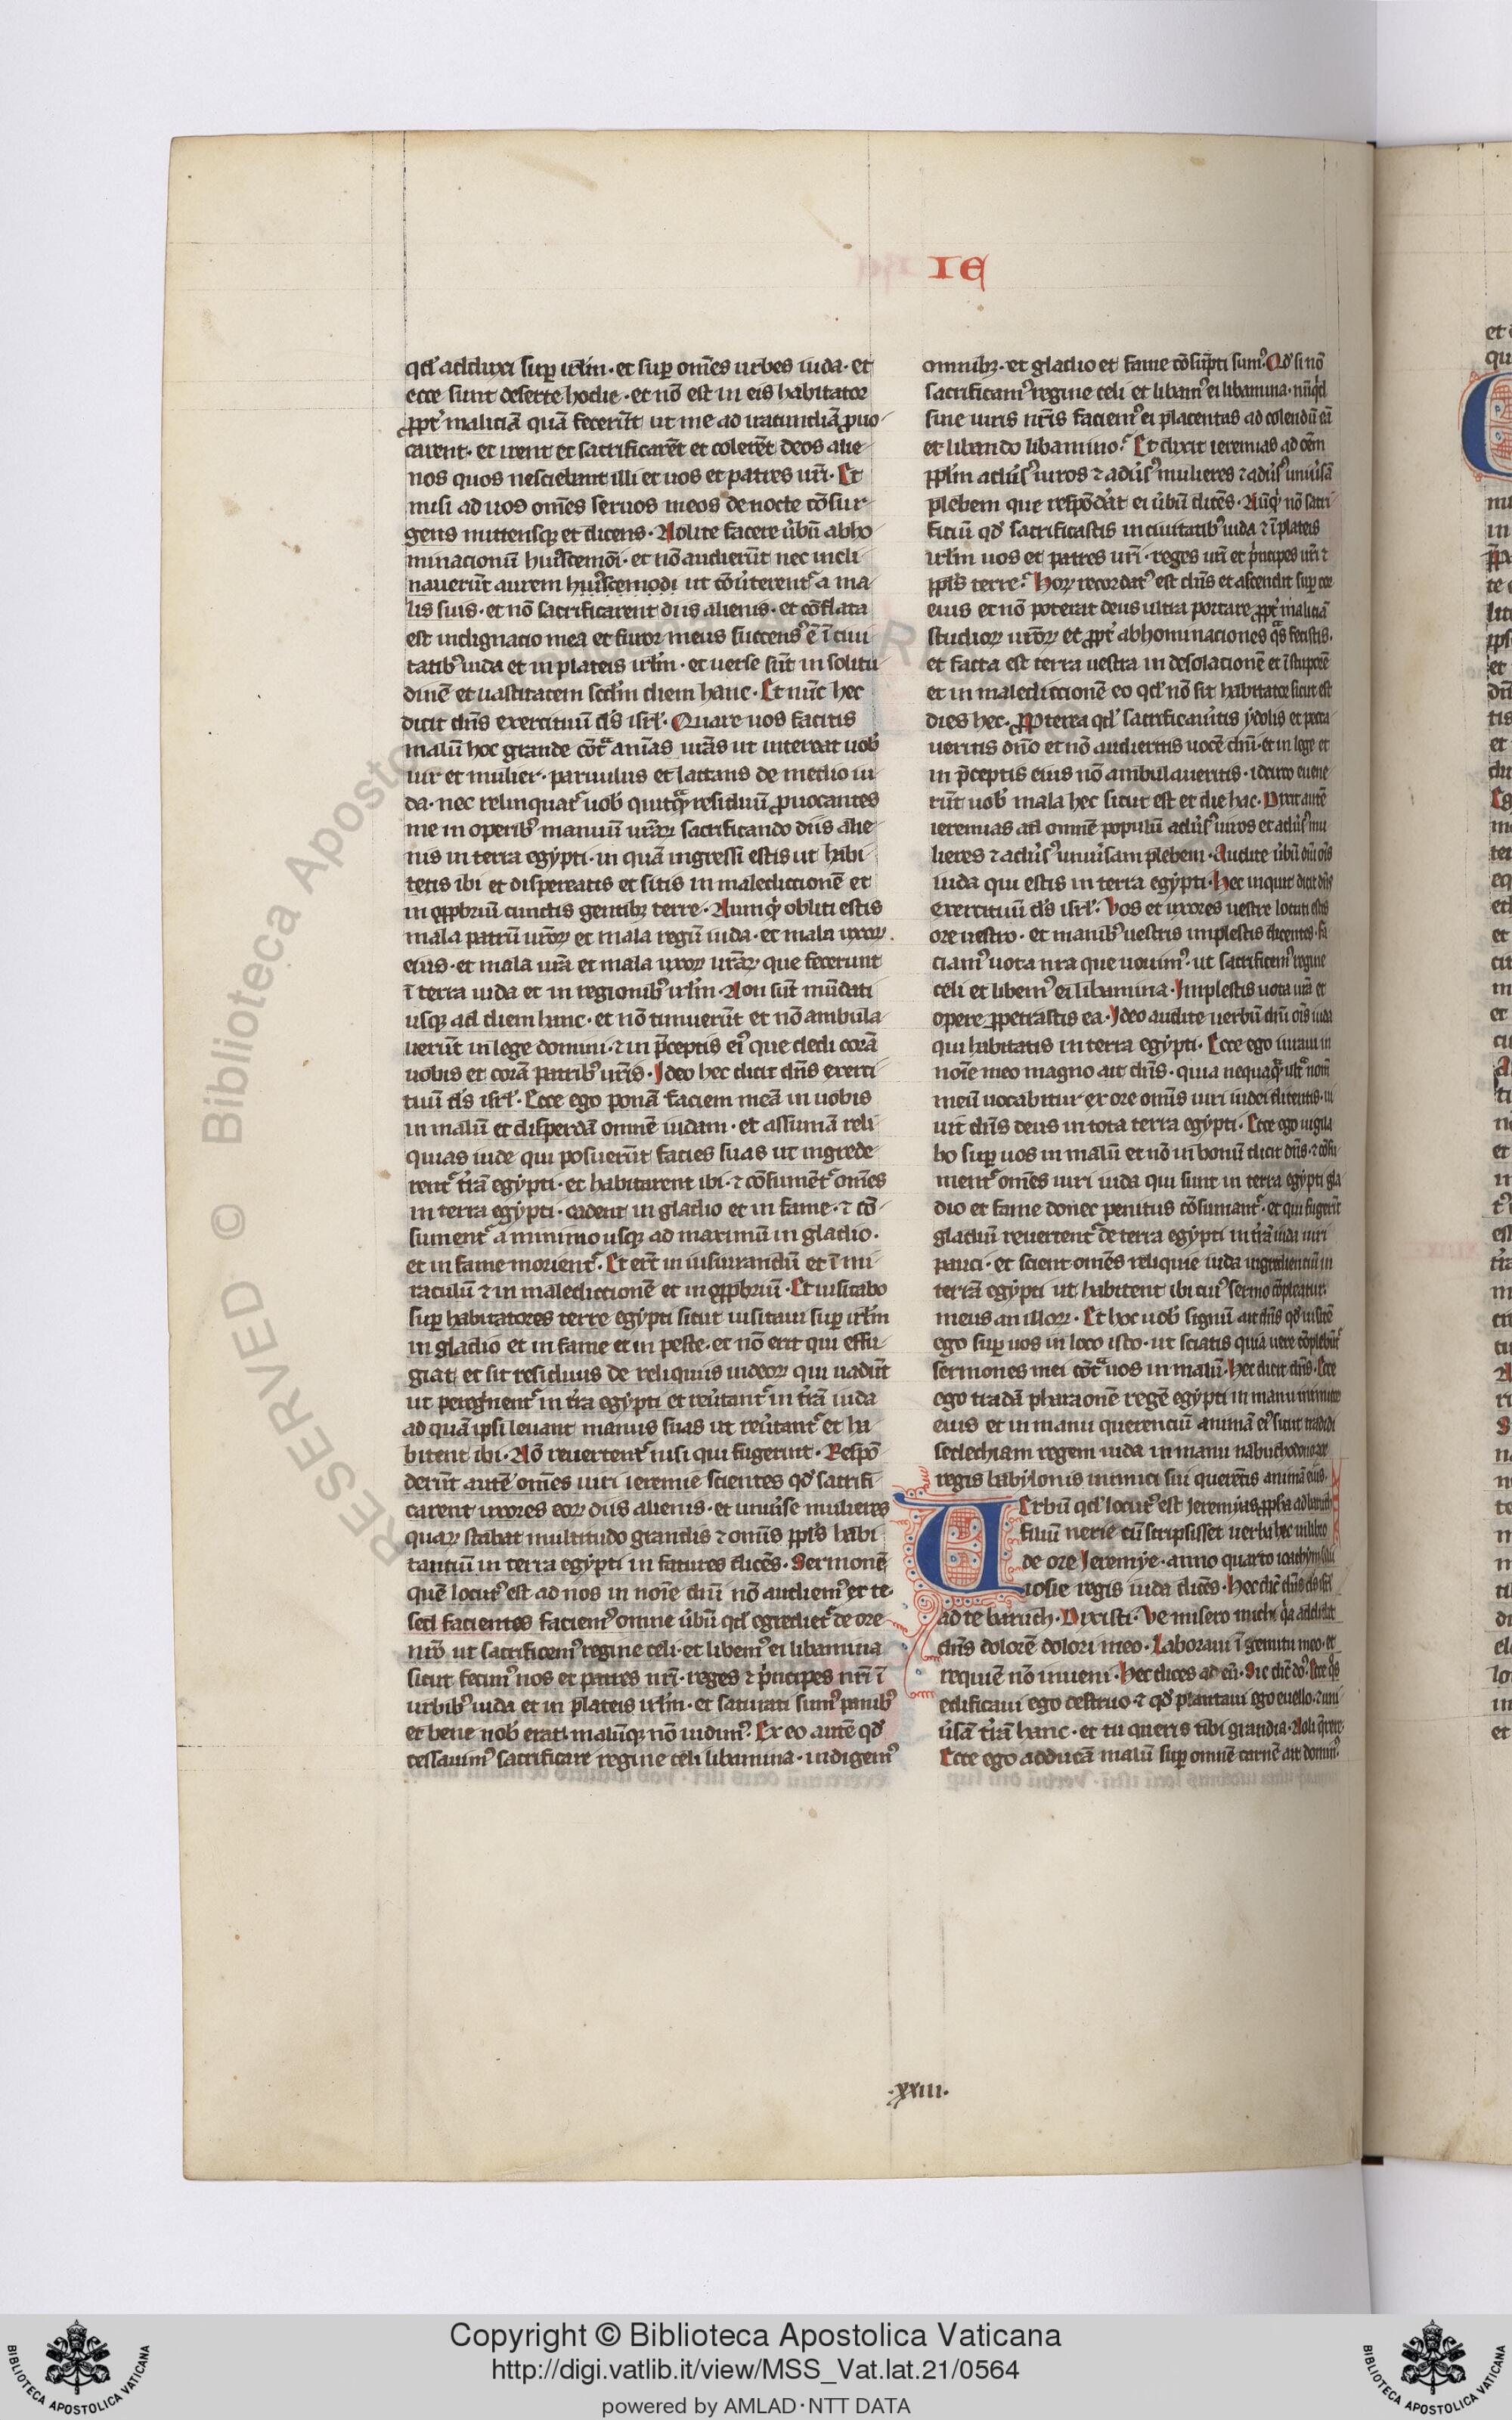 IE
qd' adduxi sup irl'm · et sup om̄es urbes iuda · et
ecce sunt deserte hodie · et nō est in eis habitator
ꝓpt' maliciā quā fecerūt ut me ad iracundiā ꝓuo
carent · et irent et sacrificarēt et colerēt deos alie
nos quos nesciebant illi et uos et patres ur̄i · Et
misi ad uos om̄es seruos meos de nocte cōsur
gens mittensq; et dicens · Nolite facere ủbū abho
minacionū huiꝰcemōi · et nō audierūt nec incli
nauerūt aurem huiꝰcemodi ut cōủterent᷑ a ma
lis suis · et nō sacrificarent diis alienis · et cōflata
est indignacio mea et furor meus succensꝰ ē ī ciui
tatibꝰ iuda et in plateis irl'm · et uerse sūt in solitu
dinē et uastitatem scd'm diem hanc · Et nūc hec
dicit dn̄s exercituū ds̄ isrl' · Quare uos facitis
malū hoc grande cōt᷑ an̄ias ur̄as ut intereat uob'
uir et mulier · paruulus et lactans de medio iu
da · nec relinquat᷑ uob' quitqᷓ residuū ꝓuocantes
me in operibꝰ manuū ur̄aꝝ sacrificando diis alie
nis in terra egypti · in quā ingressi estis ut habi
tetis ibi et dispereatis et sitis in malediccionē et
in oppbriū cunctis gentibꝫ terre · Numqͥ obliti estis
mala patrū ur̄oꝝ et mala regū iuda · et mala uxoꝝ
eius · et mala ur̄a et mala uxoꝝ ur̄aꝝ que fecerunt
ī terra iuda et in regionibꝰ irl'm · Non sūt mūdati
usq; ad diem hanc · et nō timuerūt et nō ambula
uerūt in lege domini · ⁊ in p̄ceptis eiꝰ que dedi corā
uobis et corā patribꝰ ur̄is · Ideo hec dicit dn̄s exerci
tuū ds̄ isrl' · Ecce ego ponā faciem meā in uobis
in malū et disperdā omnē iudam · et assumā reli
quias iude qui posuerūt facies suas ut ingrede
rent᷑ t'rā egypti · et habitarent ibi · ⁊ cōsumēt᷑ om̄es
in terra egypti · cadent in gladio et in fame · ⁊ cō
sument᷑ a minimo usq; ad maximū in gladio ·
et in fame morient᷑ · Et erūt in iusiurandū et ī mi
raculū ⁊ in malediccionē et in oppbriū · Et uisitabo
sup habitatores terre egypti sicut uisitaui sup irl'm
in gladio et in fame et in peste · et nō erit qui effu
giat et sit residuus de reliquiis iudeoꝝ qui uadūt
ut peregͥnent᷑ in t'ra egypti et reủtant᷑ in t'rā iuda
ad quā ipsi leuant manus suas ut reủtant᷑ et ha
bitent ibi · Nō reuertent᷑ nisi qui fugerint · Respō
derūt autē om̄es uiri ieremie scientes qd' sacrifi
carent uxores eoꝝ diis alienis · et uniủse mulieres
quaꝝ stabat multitudo grandis ⁊ omīs ppl's habi
tantiū in terra egypti in fatures dicēs · Sermonē
quē locutꝰ est ad nos in noīe dn̄i nō audiemꝰ ex te
sed facientes faciemꝰ omne ủbū qd' egrediet᷑ de ore
nr̄o ut sacrificemꝰ regine celi · et libemꝰ ei libamina
sicut fecimꝰ nos et patres nr̄i · reges ⁊ pͥncipes nr̄i ī
urbibꝰ iuda et in plateis irl'm · et saturati sumꝰ panibꝰ
et bene nob' erat malūq; nō uidimꝰ · Ex eo autē qd'
cessauimꝰ sacrificare regine celi libamina · indigemꝰ
omnibꝫ · et gladio et fame cōsūpti sumꝰ · Qd' si nō
sacrificamꝰ regine celi et libamꝰ ei libamina · nūqͥd
sine uiris nr̄is faciemꝰ ei placentas ad colendū eā
et libando libamina · Et dixit ieremias ad oēm
ppl'm aduủsꝰ uiros ⁊ aduủsꝰ mulieres ⁊ aduủsꝰ uniủsā
plebem que respōdāt ei ủbū dicēs · Nūqͥ nō sacri
ficiū qd' sacrificastis in ciuitatibꝰ iuda ⁊ ī plateis
irl'm uos et patres ur̄i · reges ur̄i et pͥncipes ur̄i ⁊
ppl's terre · Hoꝝ recordatꝰ est dn̄s et ascendit sup cor
eius et nō poterat deus ultra portare ꝓpt' maliciā
studioꝝ ur̄oꝝ et ꝓpt' abhominaciones qᷓs fecistis ·
et facta est terra uestra in desolacionē et ī stuporē
et in malediccionē eo qd' nō sit habitator sicut est
dies hec · Propterea qd' sacrificaủitis ydolis et pecca
ueritis dn̄o et nō audieritis uocē dn̄i · et in lege et
in p̄ceptis eius nō ambulaueritis · idcirco euene
rūt uob' mala hec sicut est et die hac · Dixit autē
ieremias ad omnē populū aduủsꝰ uiros et aduủsꝰ mu
lieres ⁊ aduủsꝰ uniủsam plebem · Audite ủbū dn̄i om̄s
iuda qui estis in terra egypti · Hec inquit dicit dn̄s
exercituū ds̄ isrl' · Vos et uxores uestre locuti estis
ore uestro · et manibꝰ uestris implestis dicentes · fa
ciamꝰ uota nr̄a que uouimꝰ · ut sacrificemꝰ regine
celi et libemꝰ ei libamina · Implestis uota ur̄a et
opere ꝓpetrastis ea · Ideo audite uerbū dn̄i om̄s iuda
qui habitatis in terra egypti · Ecce ego iuraui in
noīe meo magno ait dn̄s · quia nequaqᷓ ultᷓ nom̄
meū uocabitur ex ore omīs uiri iudei dicentis · ui
uit dn̄s deus in tota terra egypti · Ecce ego uigila
bo sup uos in malū et nō in bonū dicit dn̄s · ⁊ cōsu
ment᷑ om̄es uiri iuda qui sunt in terra egypti gla
dio et fame donec penitus cōsumant᷑ · et qui fugerīt
gladiū reuertent᷑ de terra egypti in t'rā iuda uiri
pauci · et scient om̄es reliquie iuda ingredientiū in
terrā egypti ut habitent ibi cuiꝰ sermo cōpleatur
meus an illoꝝ · Et hoc uob' signū ait dn̄s qd' uisitē
ego sup uos in loco isto · ut sciatis quia uere cōplebūt᷑
sermones mei cōtᷓ uos in malū · Hec dicit dn̄s · Ecce
ego tradā pharaonē regē egypti in manu inimico
eius et in manu querenciū animā eiꝰ sicut tradidi
sedechiam regem iuda in manu nabuchodonosor
regis babylonis inimici sui querētis animā eius ·
UErbū qd' locutꝰ est Jeremias ꝓph'a ad baruch
filiū nerie cū scripsisset uerba hec in libro
de ore Jeremye · anno quarto ioachym filii
iosie regis iuda dicēs · Hec dicit dn̄s ds̄ isrl'
ad te baruch · Dixisti · Ve misero michi qͥa addidit
dn̄s dolorē dolori meo · Laboraui ī gemitu meo · et
requiē nō inueni · Hec dices ad eū · Sic dicit dn̄s · Ecce qͦs
edificaui ego destruo · ⁊ qd' plantaui ego euello · ⁊ uni
ủsā t'rā hanc · et tu queris tibi grandia · Noli qͣrere ·
Ecce ego adducā malū sup omnē carnē ait dominꝰ
· xxiii ·
RESERVED © Biblioteca Apostolica
Copyright © Biblioteca Apostolica Vaticana
http://digi.vatlib.it/view/MSS_Vat.lat.21/0564
powered by AMLAD·NTT DATA
BIBLIOTECA APOSTOLICA VATICANA
BIBLIOTECA APOSTOLICA VATICANA